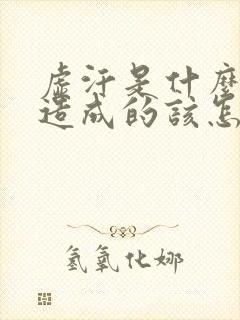 虚汗是什麼
造成的該怎
氢氧化娜